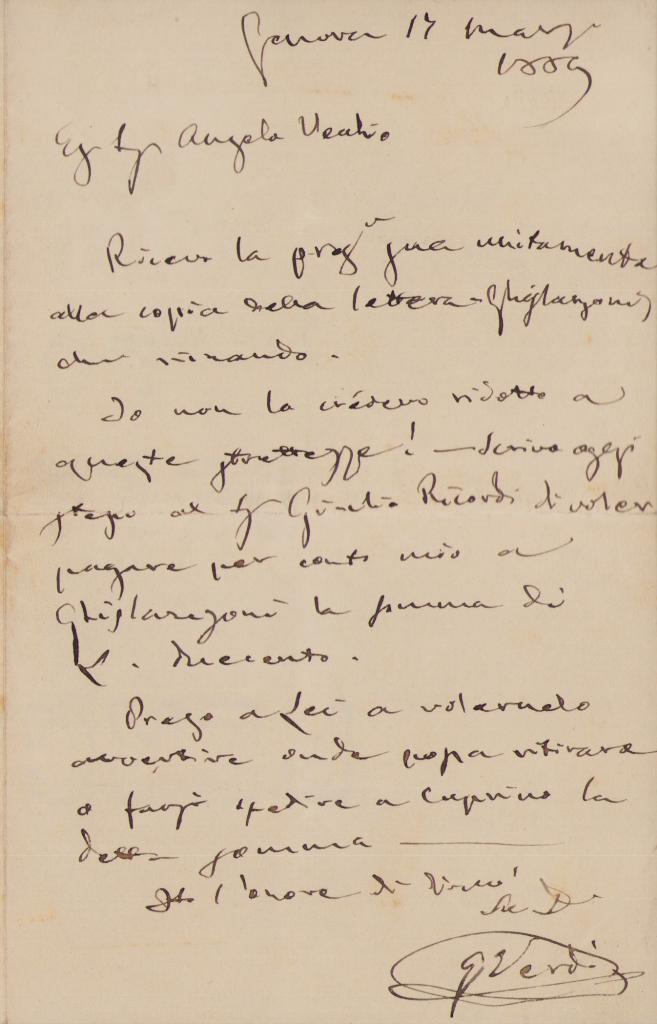 Genova 17 marzo
1889
Eg Sig Angelo
Ricevo la preg.ª sua unitamente
alla copia della lettera Ghislanzoni
che rimando.
Io non lo credevo ridotto a
queste strettezze! — Scrivo oggi
stesso al Sig Giulio Ricordi di voler
pagare per conto mio a
Ghislanzoni la somma di
L. duecento.
Prego a Lei a volernelo
avvertire onde possa ritirare
o farsi spedire a Caprino la
detta somma
Ho l'onore di dirmi
G Verdi